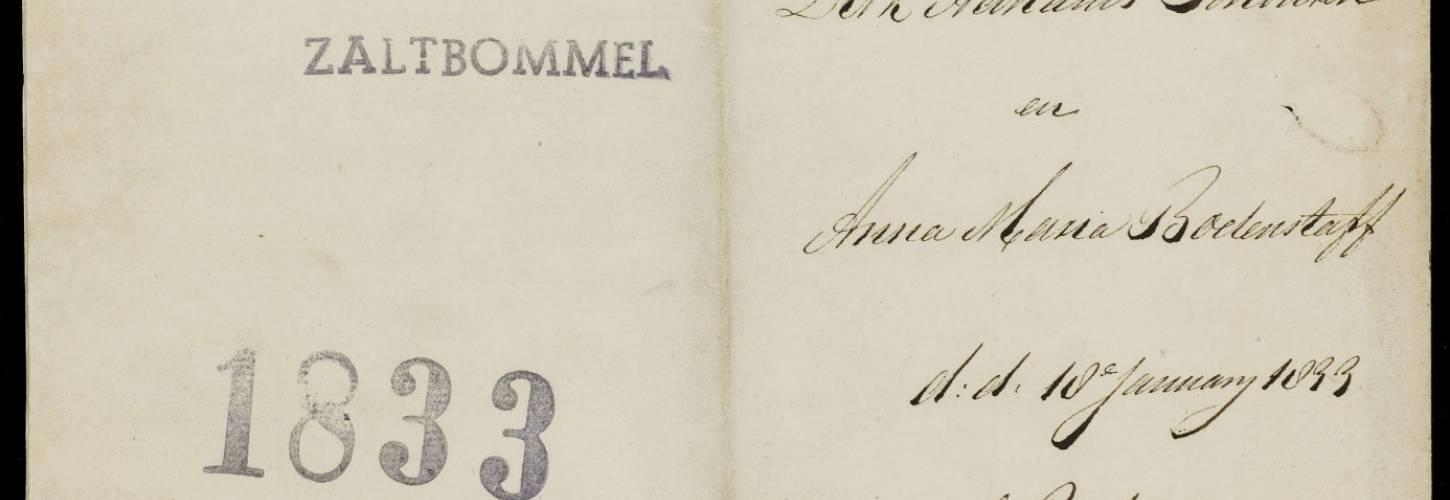 ZALTBOMMEL
1833
Dirk Adrianus
en
Anna Maria Bodenstaff
d: d: 18e January 1833